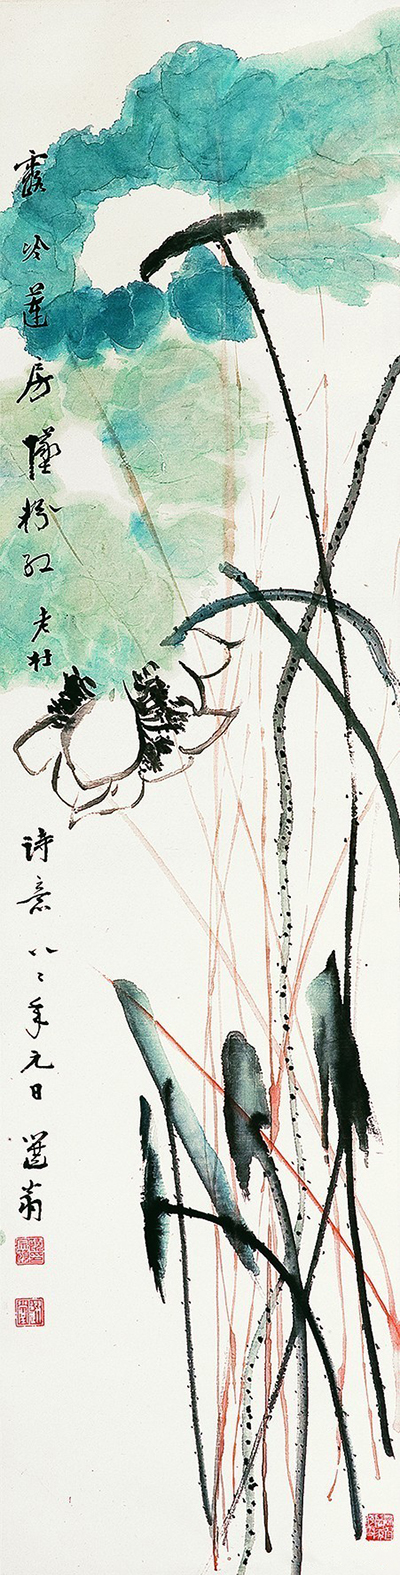 露冷莲房坠粉红 老杜
诗意 八二年元日 邋翁